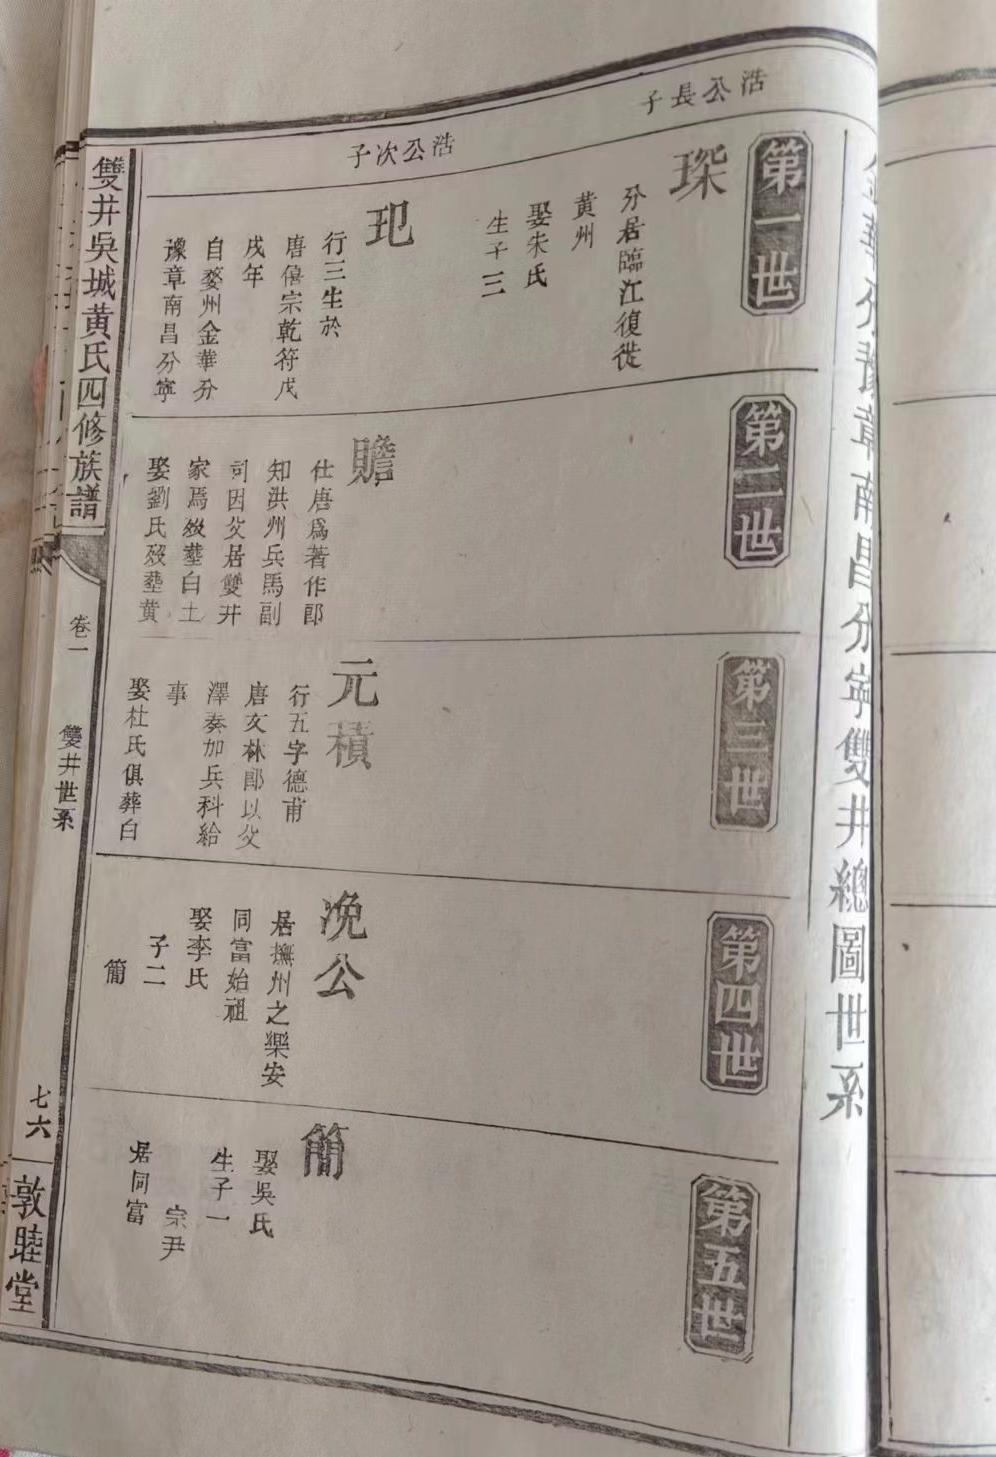 金華分豫章南昌分寧雙井總圖世系
第一世
浩公長子
琛
分居臨江復徙
黄州
娶朱氏
生子三
浩公次子
玘
行三生於
唐僖宗乾符戊
戌年
自婺州金華分
豫章南昌分寧
第二世
贍
仕唐爲著作郎
知洪州兵馬副
司因父居雙井
家焉歿塟白土
娶劉氏歿塟黄
第三世
元積
行五字德甫
唐文林郎以父
澤奏加兵科給
事
娶杜氏俱葬白
第四世
浼公
居撫州之樂安
同富始祖
娶李氏
子二
簡
第五世
簡
娶吳氏
生子一
宗尹
居同富
雙井吳城黄氏四修族譜
卷二
雙井世系
七六
敦睦堂